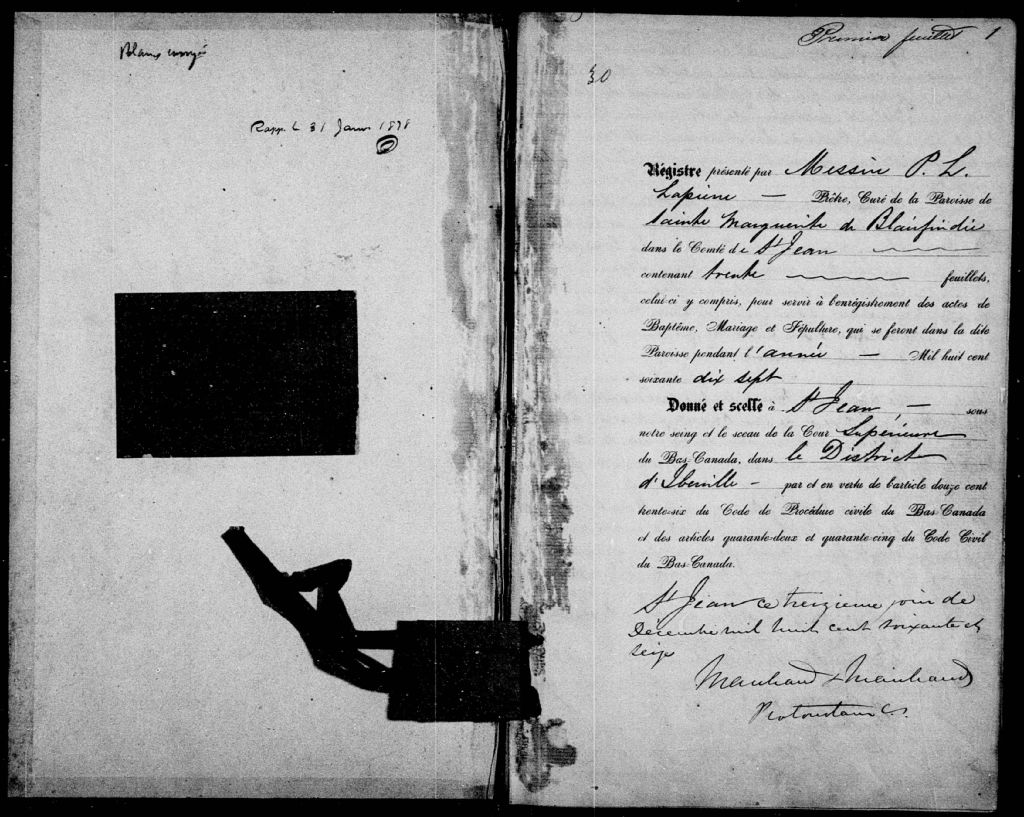 Rapp. L 31 Janv 1878
Premier feuillet 1
30
Régistre présenté par Messire P. L.
Lapierre — Prêtre, Curé de la Paroisse de
Sainte Marguerite de Blairfindie
dans le Comté de St Jean
contenant trente feuillets,
celui-ci y compris, pour servir à l'enrégistrement des actes de
Baptême, Mariage et Sépulture, qui se feront dans la dite
Paroisse pendant l'année — Mil huit cent
soixante dix sept
Donné et scellé à St Jean, — sous
notre seing et le sceau de la Cour Supérieure
du Bas-Canada, dans le District
d'Iberville - par et en vertu de l'article douze cent
trente-six du Code de Procédure civile du Bas-Canada
et des articles quarante-deux et quarante-cinq du Code Civil
du Bas-Canada.
St Jean ce treizieme jour de
Decembre mil huit cent soixante et
seize
Marchand & Marchand
Protonotaire C.S.